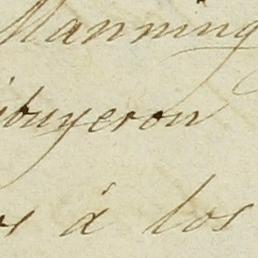 Manning
ibuyeron
os á los